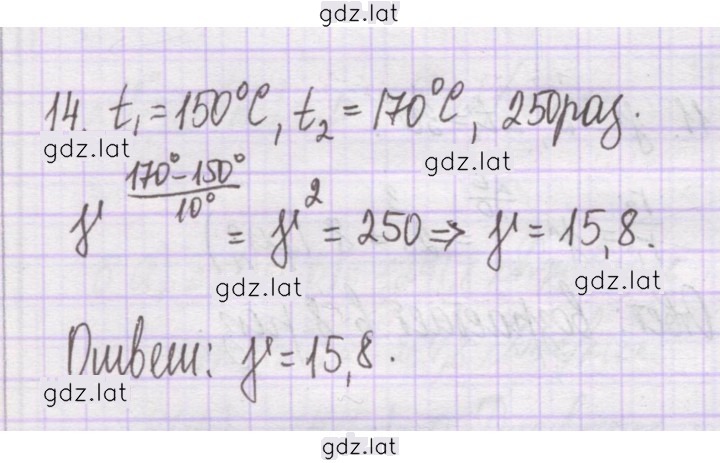 gdz.lat
14. t₁ = 150°C, t₂ = 170°C, 250 раз.
gdz.lat gdz.lat
γ^((170°-150°)/10°) = γ² = 250 ⇒ γ = 15,8.
gdz.lat gdz.lat
Ответ: γ = 15,8.
gdz.lat gdz.lat
gdz.lat